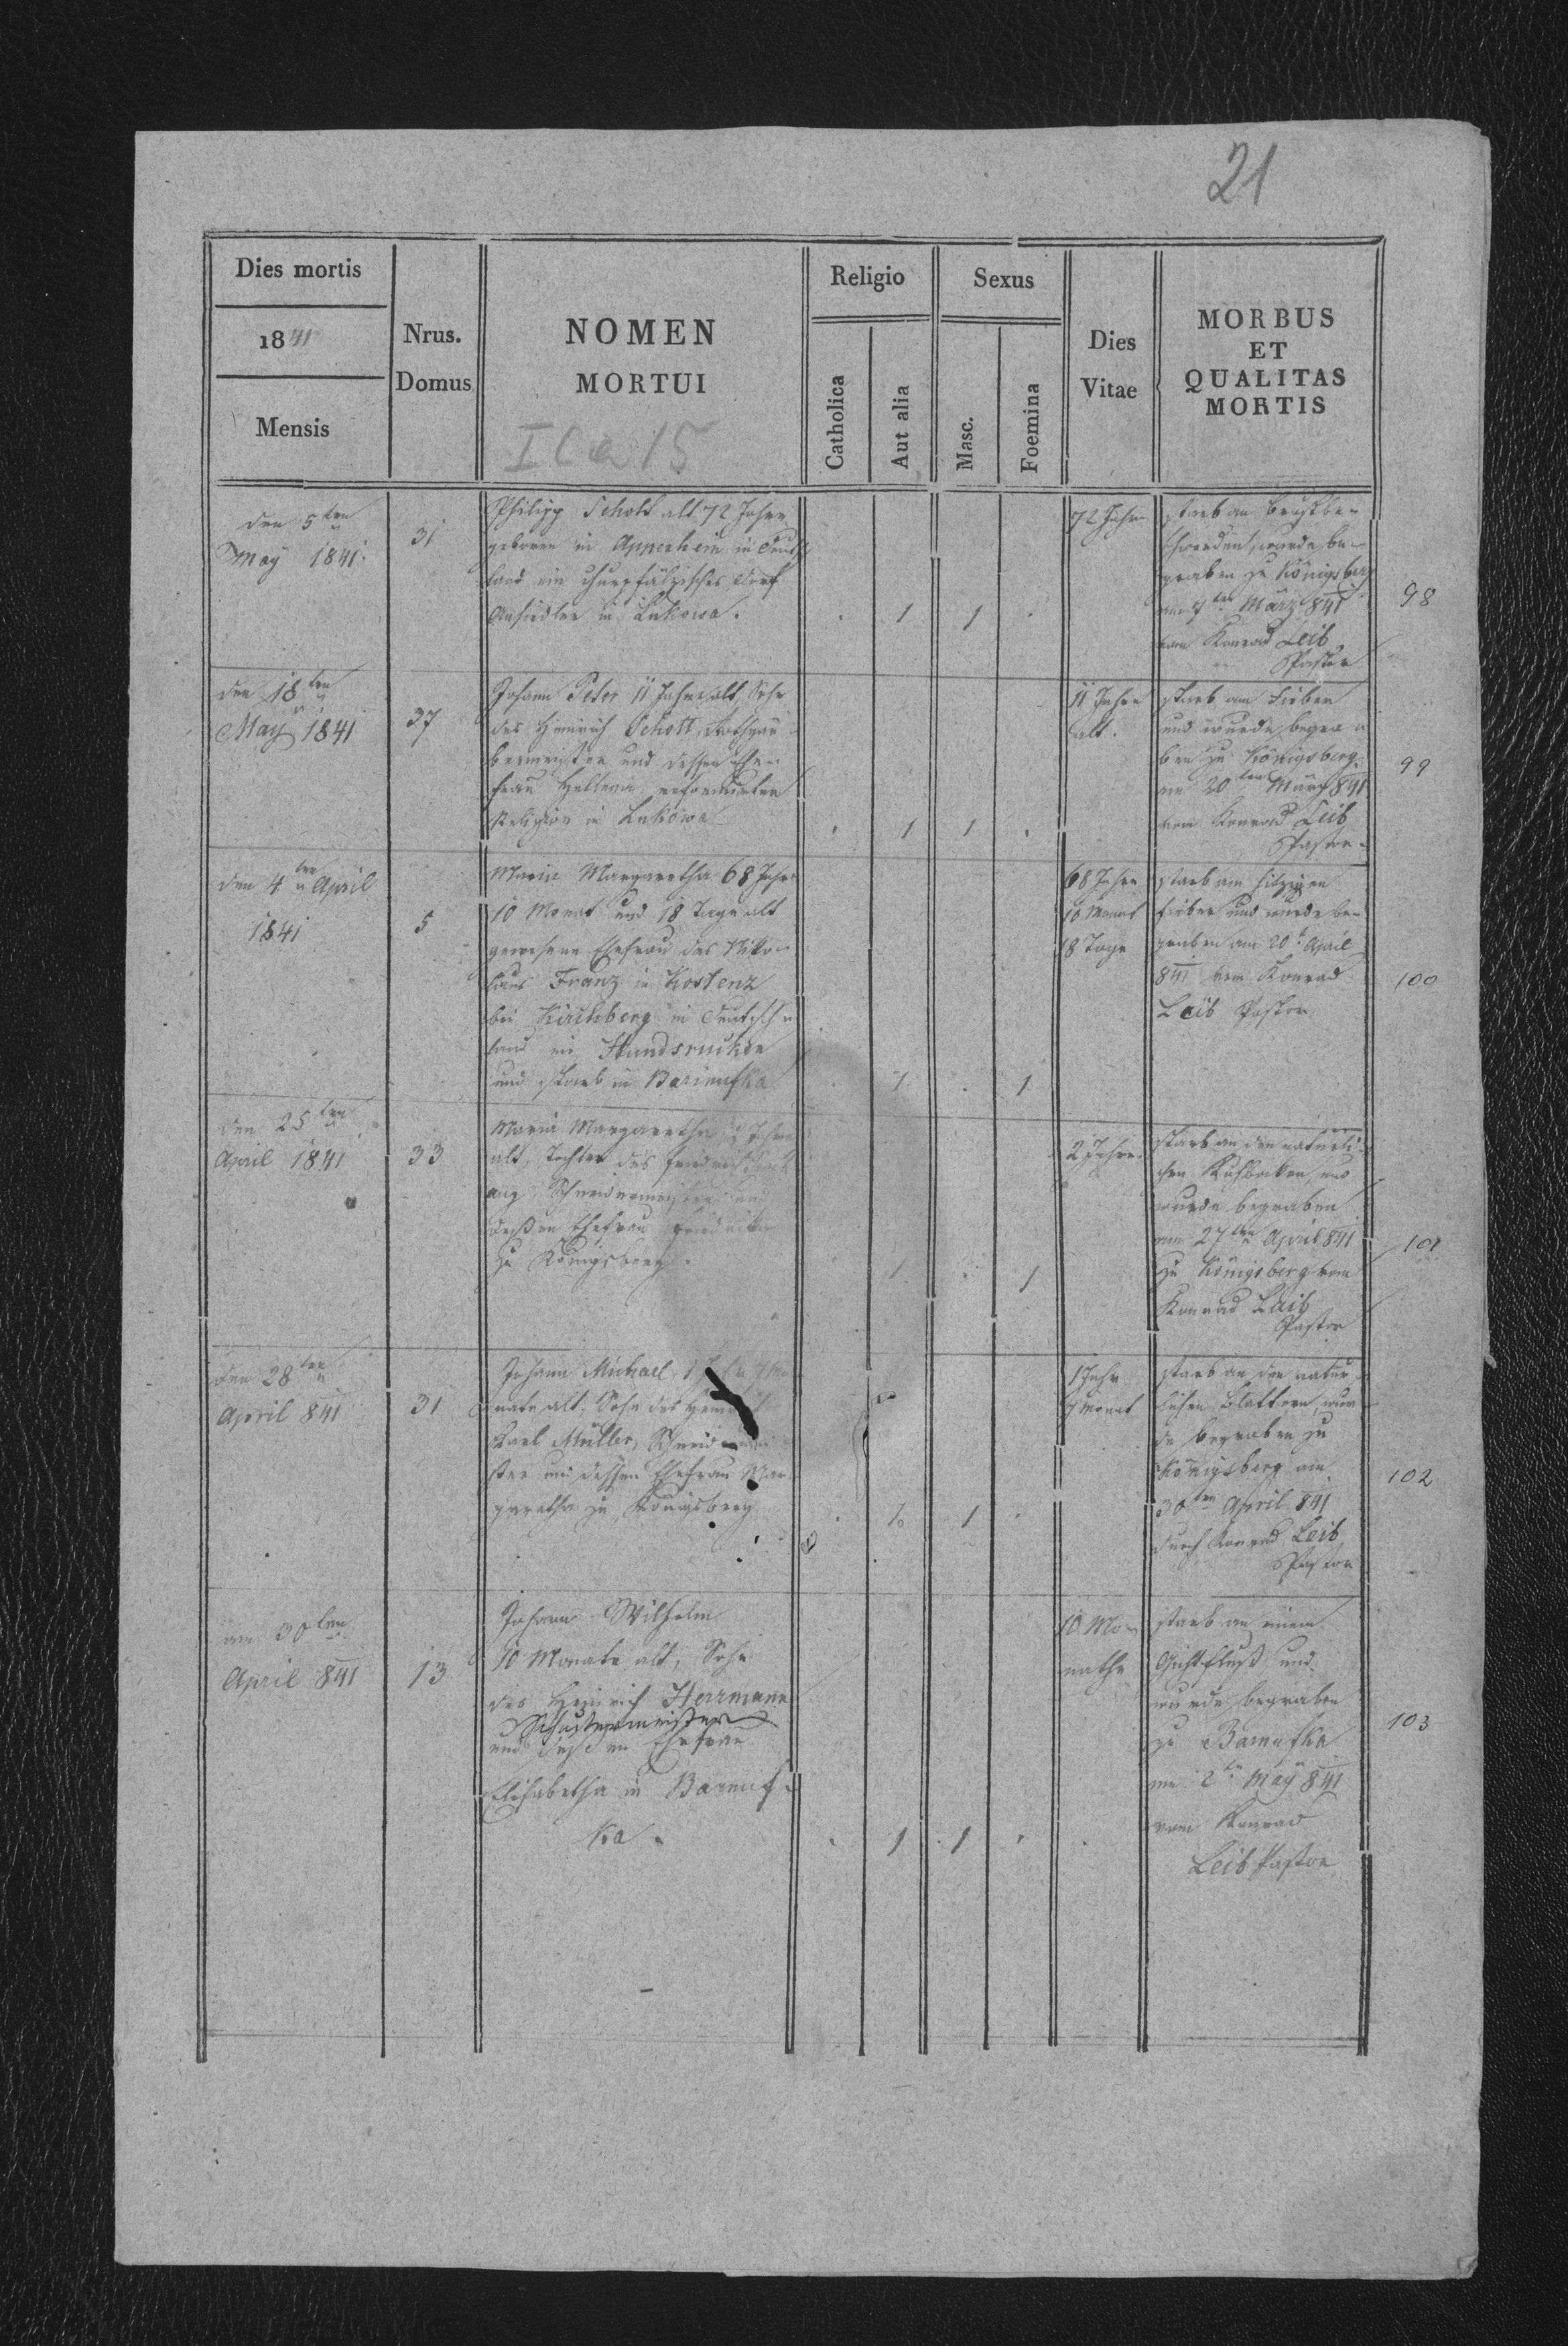 21
Dies mortis
1841
Mensis
Nrus.
Domus
NOMEN
MORTUI
I C a 15
Religio
Catholica
Aut alia
Sexus
Masc.
Foemina
Dies
Vitae
MORBUS
ET
QUALITAS
MORTIS
den 5ten
May 1841.
31
Philipp Schott alt 72 Jahre
geboren in Appenheim in Deutsch
land ein churpfälzisches Dorf
Ansiedler in Lukowa.
1
1
72 Jahre
starb an Brustbe-
schwerden, wurde be-
graben zu Königsberg
am 7ten März 841
vom Konrad Leib
Pastor
98
den 18ten
May 1841
37
Johann Peter 11 Jahre alt, Sohn
des Heinrich Schott,
und dessen Ehe-
frau reformirter
Religion in Lukowa
1
1
11 Jahre
alt.
starb am Fieber
und wurde begra-
ben zu Königsberg
am 20ten März 841
vom Konrad Leib
Pastor.
99
den 4ten April
1841
5
Maria Margaretha 68 Jahr
10 Monat und 18 Tage alt
gewesene Ehefrau des Niko-
laus Franz in Kostenz
bei Kirchberg in Deutsch-
land im Hundsrucken
und starb in Barienfka
1
1
68 Jahre
10 Monat
18 Tage
starb am hitzigen
Fieber und wurde be-
graben am 20t April
841 vom Konrad
Leib Pastor
100
den 25ten
April 1841
33
Maria Margaretha 2 Jahre
alt, Tochter des Friedrich
Schneidermeister und
dessen Ehefrau
zu Königsberg.
1
1
2 Jahre.
starb an den natürli-
chen und
wurde begraben
am 27ten April 841
zu Königsberg vom
Konrad Leib
Pastor
101
den 28ten
April 841
31
Johann Michael, 1 Jahr 7 Mo
nate alt, Sohn des Heinrich
Karl Müller, Schneidermei
ster und dessen Ehefrau Mar
garetha zu Königsberg
1
1
1 Jahr
7 Monat
starb an den natür-
lichen Blattern, wur
de begraben zu
Königsberg am
30ten April 841
durch Konrad Leib
Pastor
102
am 30ten
April 841
13
Johann Wilhelm
10 Monate alt, Sohn
des Heinrich Herrmann
Schustermeister
und dessen Ehefrau
Elisabetha in Barnuf-
ka.
1
1
10 Mo-
nathe
starb an einem
und
wurde begraben
zu Barnufka
am 2ten May 841
vom Konrad
Leib Pastor
103